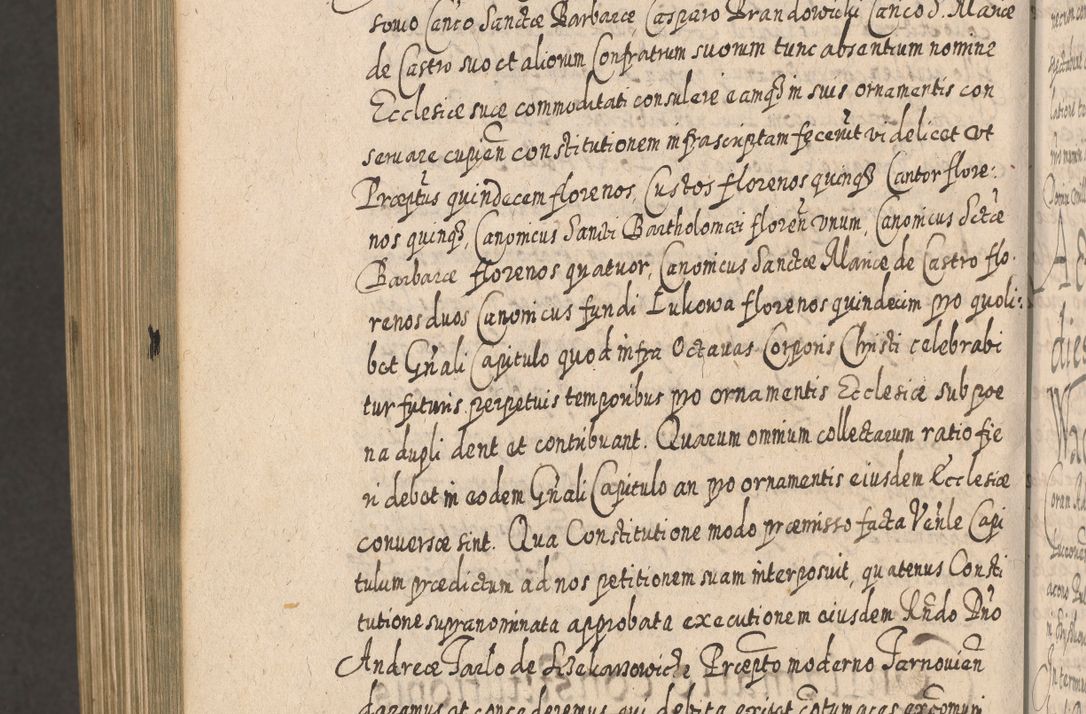 sowo Can̄co Sanctæ Barbaræ, Casparo Brandowicki Can̄co S. Mariæ
de Castro suo et aliorum Confratrum suorum tunc absentium nomine
Ecclesiæ suæ commoditati consulere eamq3 in suis ornamentis con
seruare cupien̄ constitutionem infrascriptam fecerūt videlicet vt
Præptūs quindecem florenos, Custos florenos quinq3 Cantor flore:
nos quinq3, Canonicus Sancti Bartholomæi floren̄ vnum, Canonicus Sctæ
Barbaræ florenos quatuor, Canonicus Sanctæ Mariæ de Castro flo.
renos duos Canonicus fundi Lukowa florenos quindecim pro quoli:
bet Gn̄ali Capitulo quod infra Octauas Corporis Christi celebrabi
tur futuris perpetuis temporibus pro ornamentis Ecclesiæ sub poe
na dupli dent et contribuant. Quarum omnium collectarum ratio fie
ri debet in eodem Gn̄ali Capitulo an pro ornamentis eiusdem Ecclesiæ
conuersæ sint. Qua Constitutione modo præmisso facta Ven̄le Capi
tulum prædictum ad nos petitionem suam interposuit, quatenus Consti
tutione supranominata approbata executionem eiusdem Rn̄do Dn̄o
Andreæ Jaelo de Præpto moderno Tarnovien̄
daremus et concederemus, qui debita exiget